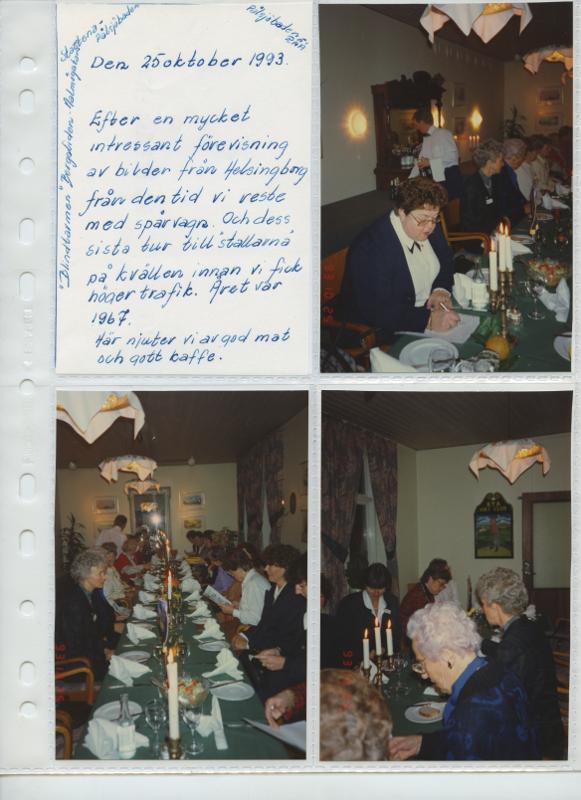 Den 25 oktober 1993.
Efter en mycket
intressant förevisning
av bilder från Helsingborg
från den tid vi reste
med spårvagn. Och dess
sista tur till "stallarna"
på kvällen innan vi fick
höger trafik. Året var
1967.
Här njuter vi av god mat
och gott kaffe.
"Blindtarmen" Bergaliden
Pålsjöbaden
Pålsjöbaden
93 10 25
93
93